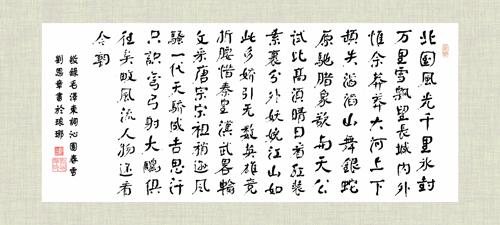 北国風光千里氷封
万里雪飘望長城内外
惟余莽莽大河上下
頓失滔滔山舞銀蛇
原馳腊象欲与天公
試比高須晴日看红装
素裹分外妖娆江山如
此多娇引无數英雄竞
折腰惜秦皇漢武畧輸
文采唐宗宋祖稍遜风
騷一代天骄成吉思汗
只識弯弓射大雕俱
往矣數風流人物还看
今朝
敬錄毛澤東詞沁園春雪
劉思章書於琅琊